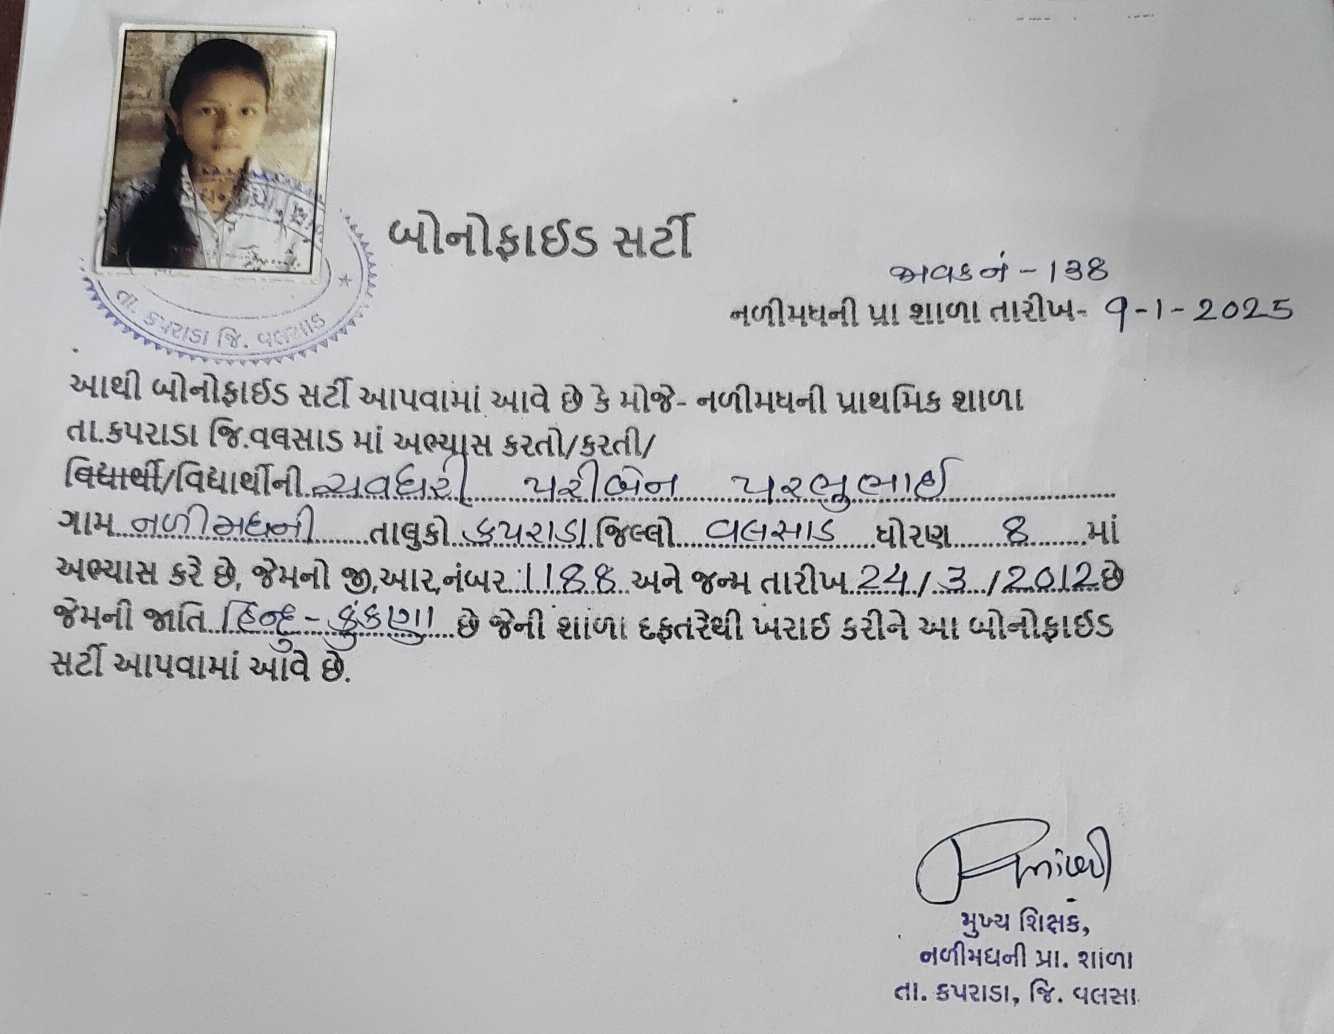 બોનોફાઈડ સર્ટી
જાવક નં - 138
નળીમધની પ્રા શાળા તારીખ- 9-1-2025
તા. કપરાડા જિ. વલસાડ
આથી બોનોફાઈડ સર્ટી આપવામાં આવે છે કે મોજે- નળીમધની પ્રાથમિક શાળા
તા.કપરાડા જિ.વલસાડ માં અભ્યાસ કરતો/કરતી/
વિદ્યાર્થી/વિદ્યાર્થીની ચવધરી પરીબેન પરભુભાઈ
ગામ નળીમધની તાલુકો કપરાડા જિલ્લો વલસાડ ધોરણ 8 માં
અભ્યાસ કરે છે, જેમનો જી,આર,નંબર 1188 અને જન્મ તારીખ 24/3/2012 છે
જેમની જાતિ હિન્દુ - કુંકણા છે જેની શાળા દફતરેથી ખરાઈ કરીને આ બોનોફાઈડ
સર્ટી આપવામાં આવે છે.
મુખ્ય શિક્ષક,
નળીમધની પ્રા. શાળા
તા. કપરાડા, જિ. વલસા